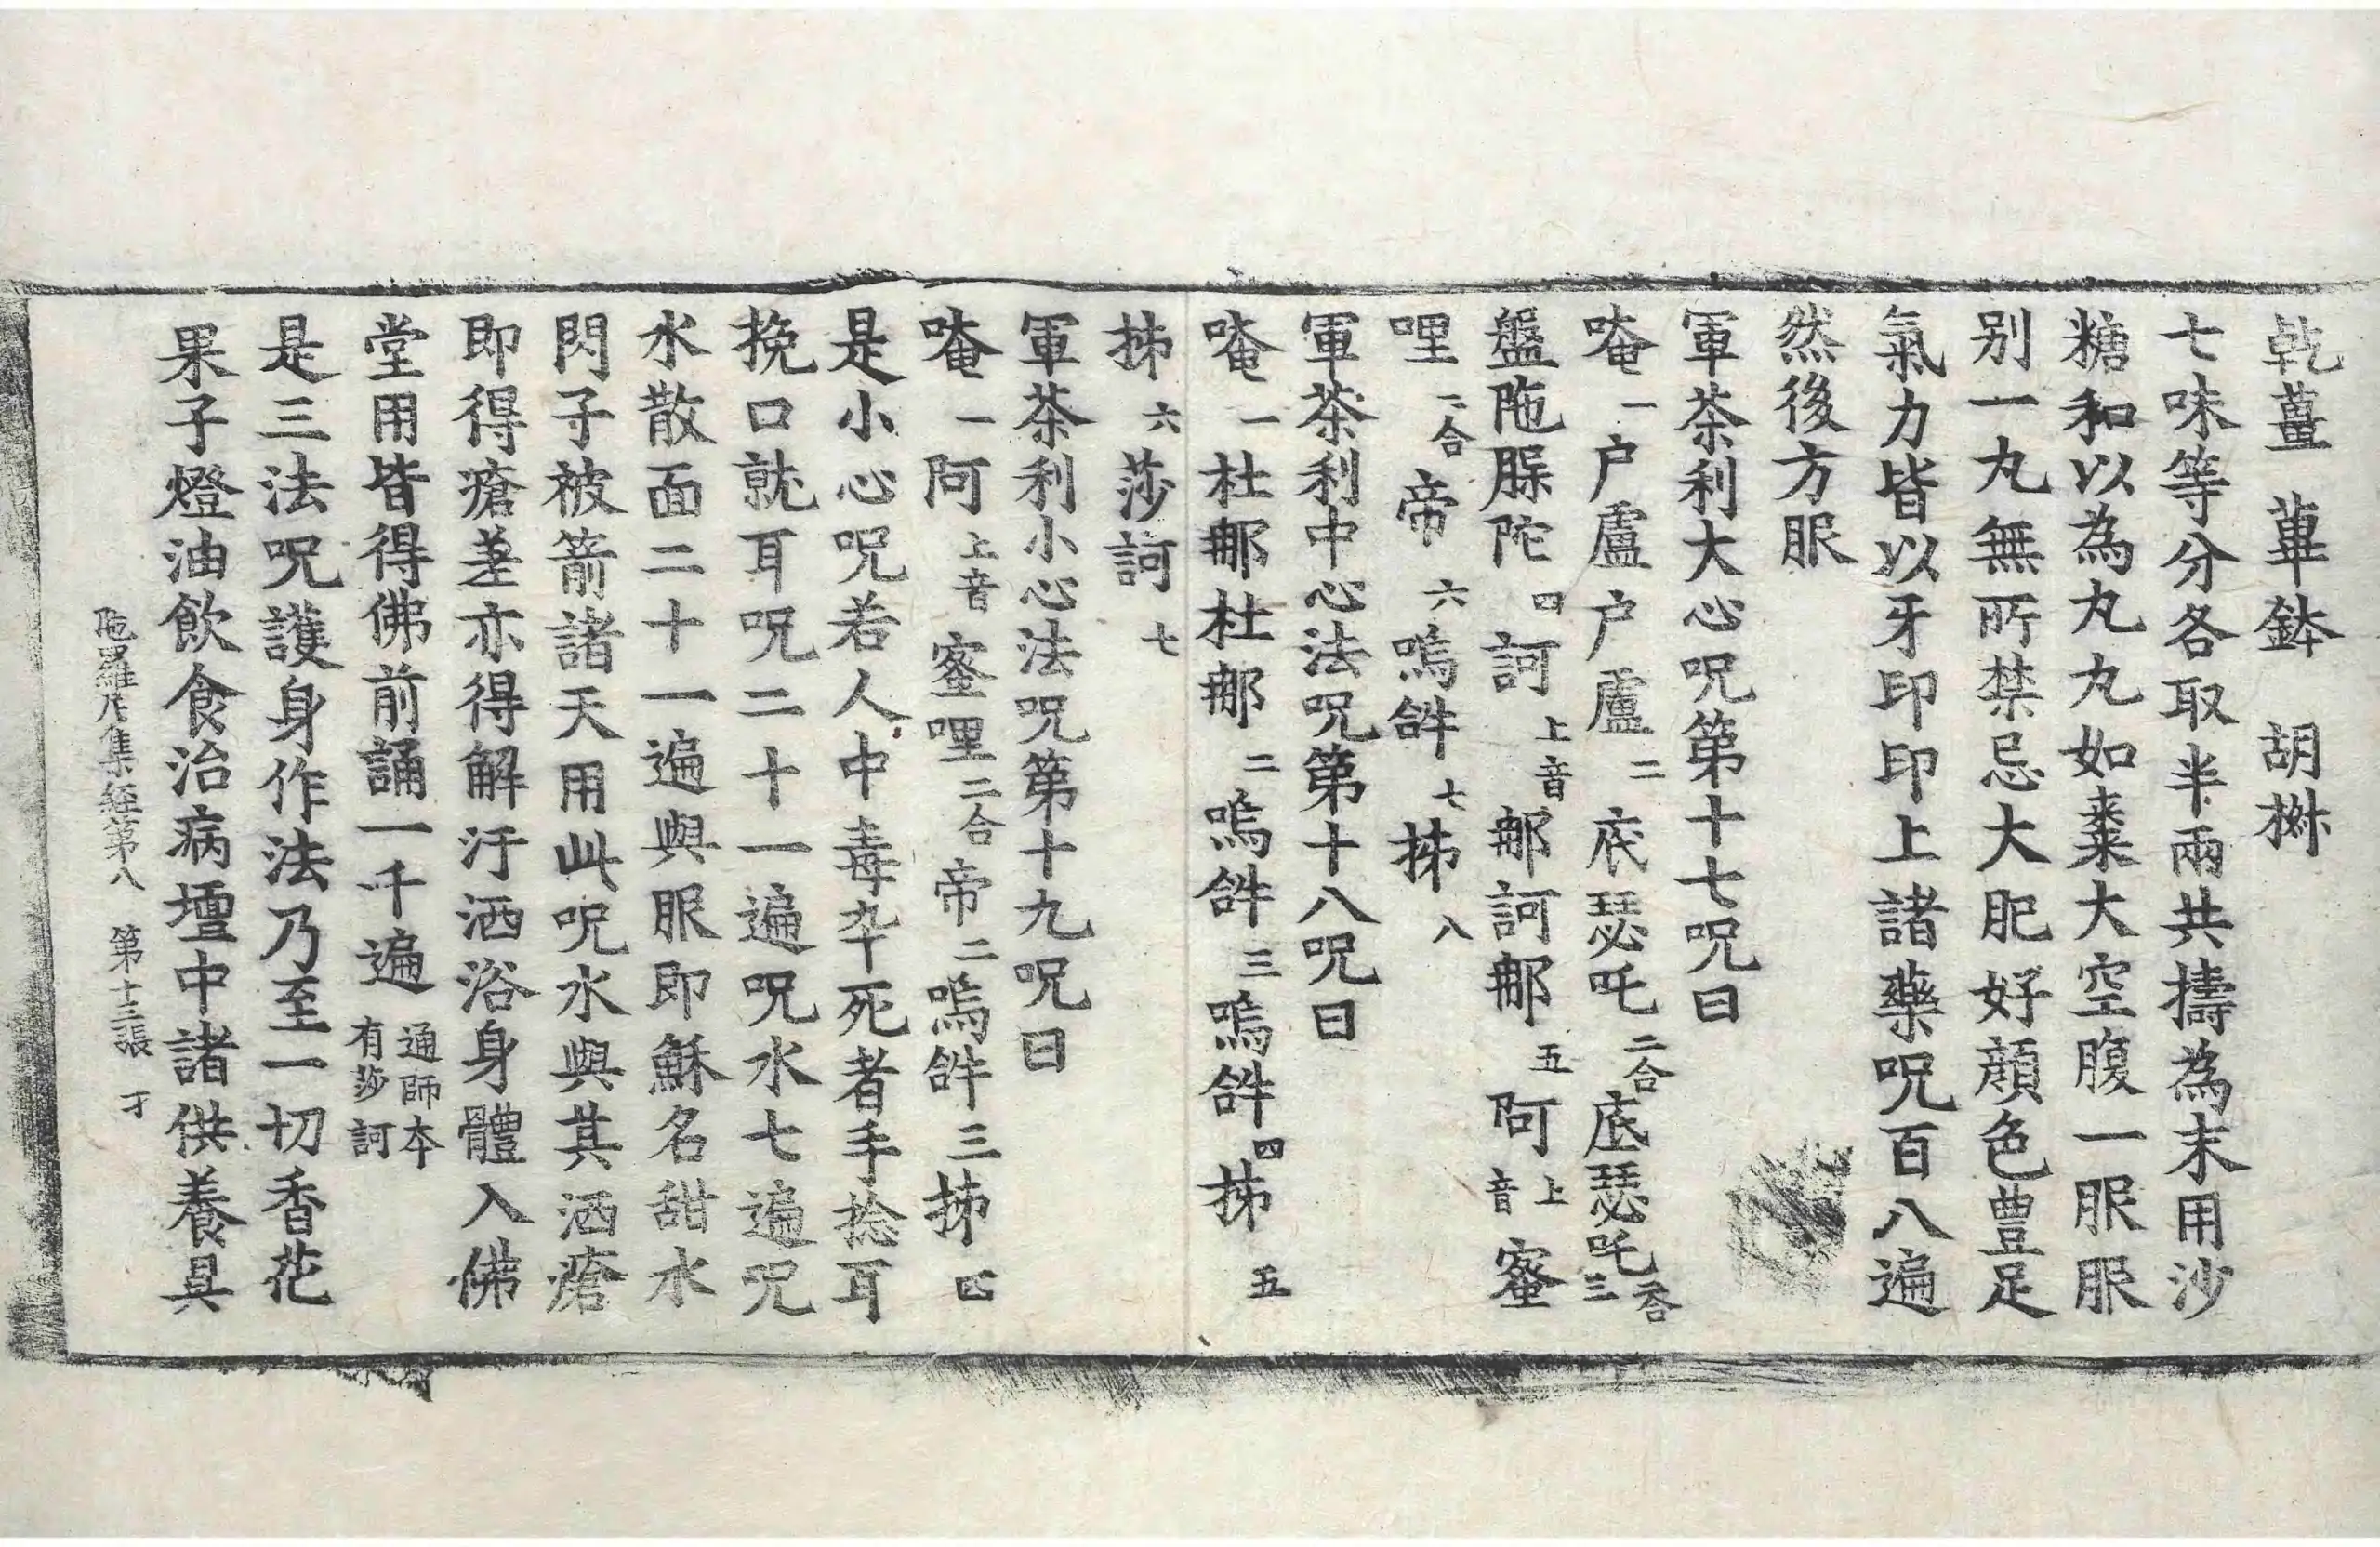 乾薑 蓽鉢 胡椒
七味等分各取半兩共擣為末用沙
糖和以為丸丸如棗大空腹一服服
別一丸無所禁忌大肥好顏色豊足
氣力皆以牙印印上諸藥呪百八遍
然後方服
軍荼利大心呪第十七呪曰
唵一戶盧戶盧二底瑟吒二合底瑟吒二合三
盤陁脲陀四訶上音那訶那五阿上音蜜
哩二合帝六嗚𤙖七抺八
軍荼利中心法呪第十八呪曰
唵一杜那杜那二嗚𤙖三嗚𤙖四抺五
抺六莎訶七
軍荼利小心法呪第十九呪曰
唵一阿上音蜜哩二合帝二嗚𤙖三抺四
是小心呪若人中毒卒死者手捻耳
挽口就耳呪二十一遍呪水七遍呪
水散面二十一遍與服即穌名甜水
閃子被箭諸天用此呪水與其洒瘡
即得瘡差亦得解汙洒浴身體入佛
堂用皆得佛前誦一千遍通師本有莎訶
是三法呪護身作法乃至一切香花
果子燈油飲食治病壇中諸供養具
陁羅尼集経第八 第十三張 才